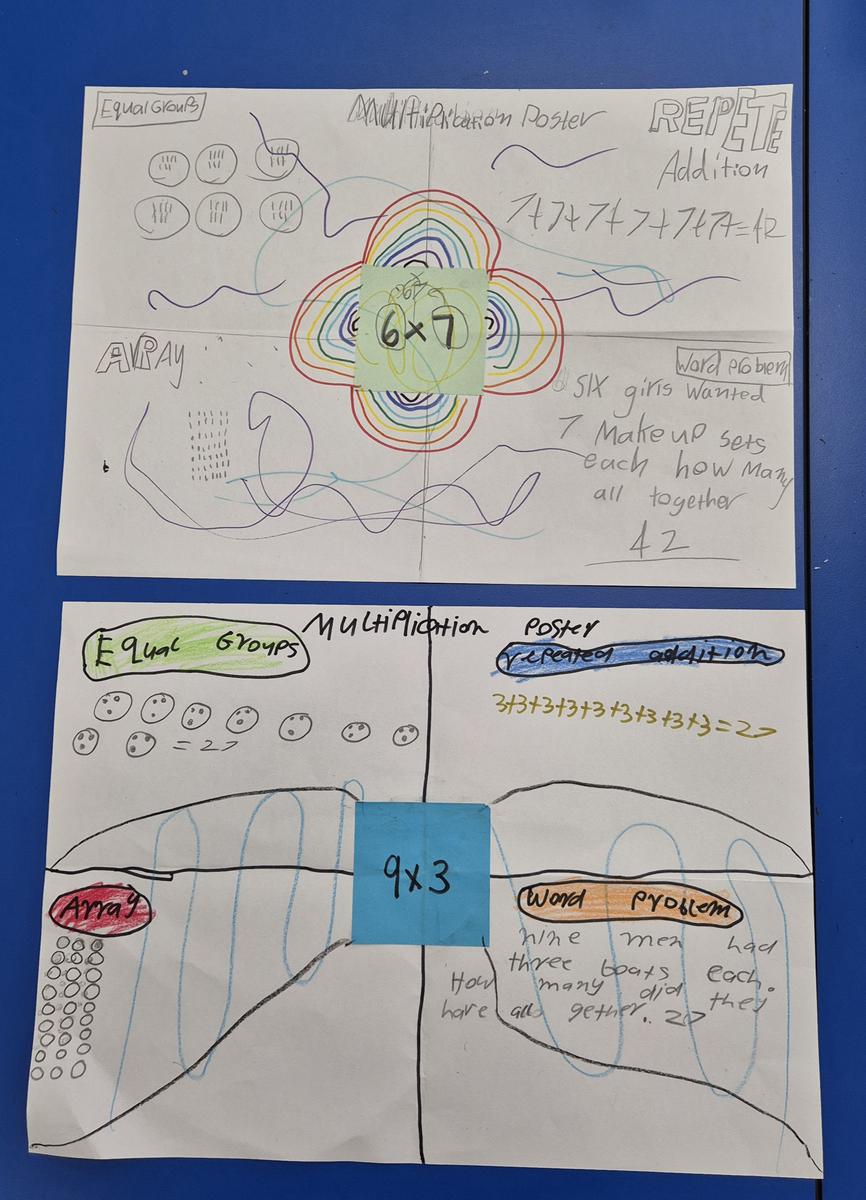 Equal Groups
Multiplication Poster
REPETE
Addition
7+7+7+7+7+7=42
6x7
ARRAY
Word problem
SIX girls wanted
7 Makeup sets
each how many
all together
42
Multiplication Poster
Equal Groups
= 27
repeated addition
3+3+3+3+3+3+3+3+3=27
9x3
Array
Word problem
nine men had
three boats each.
How many did they
have all gether. 27